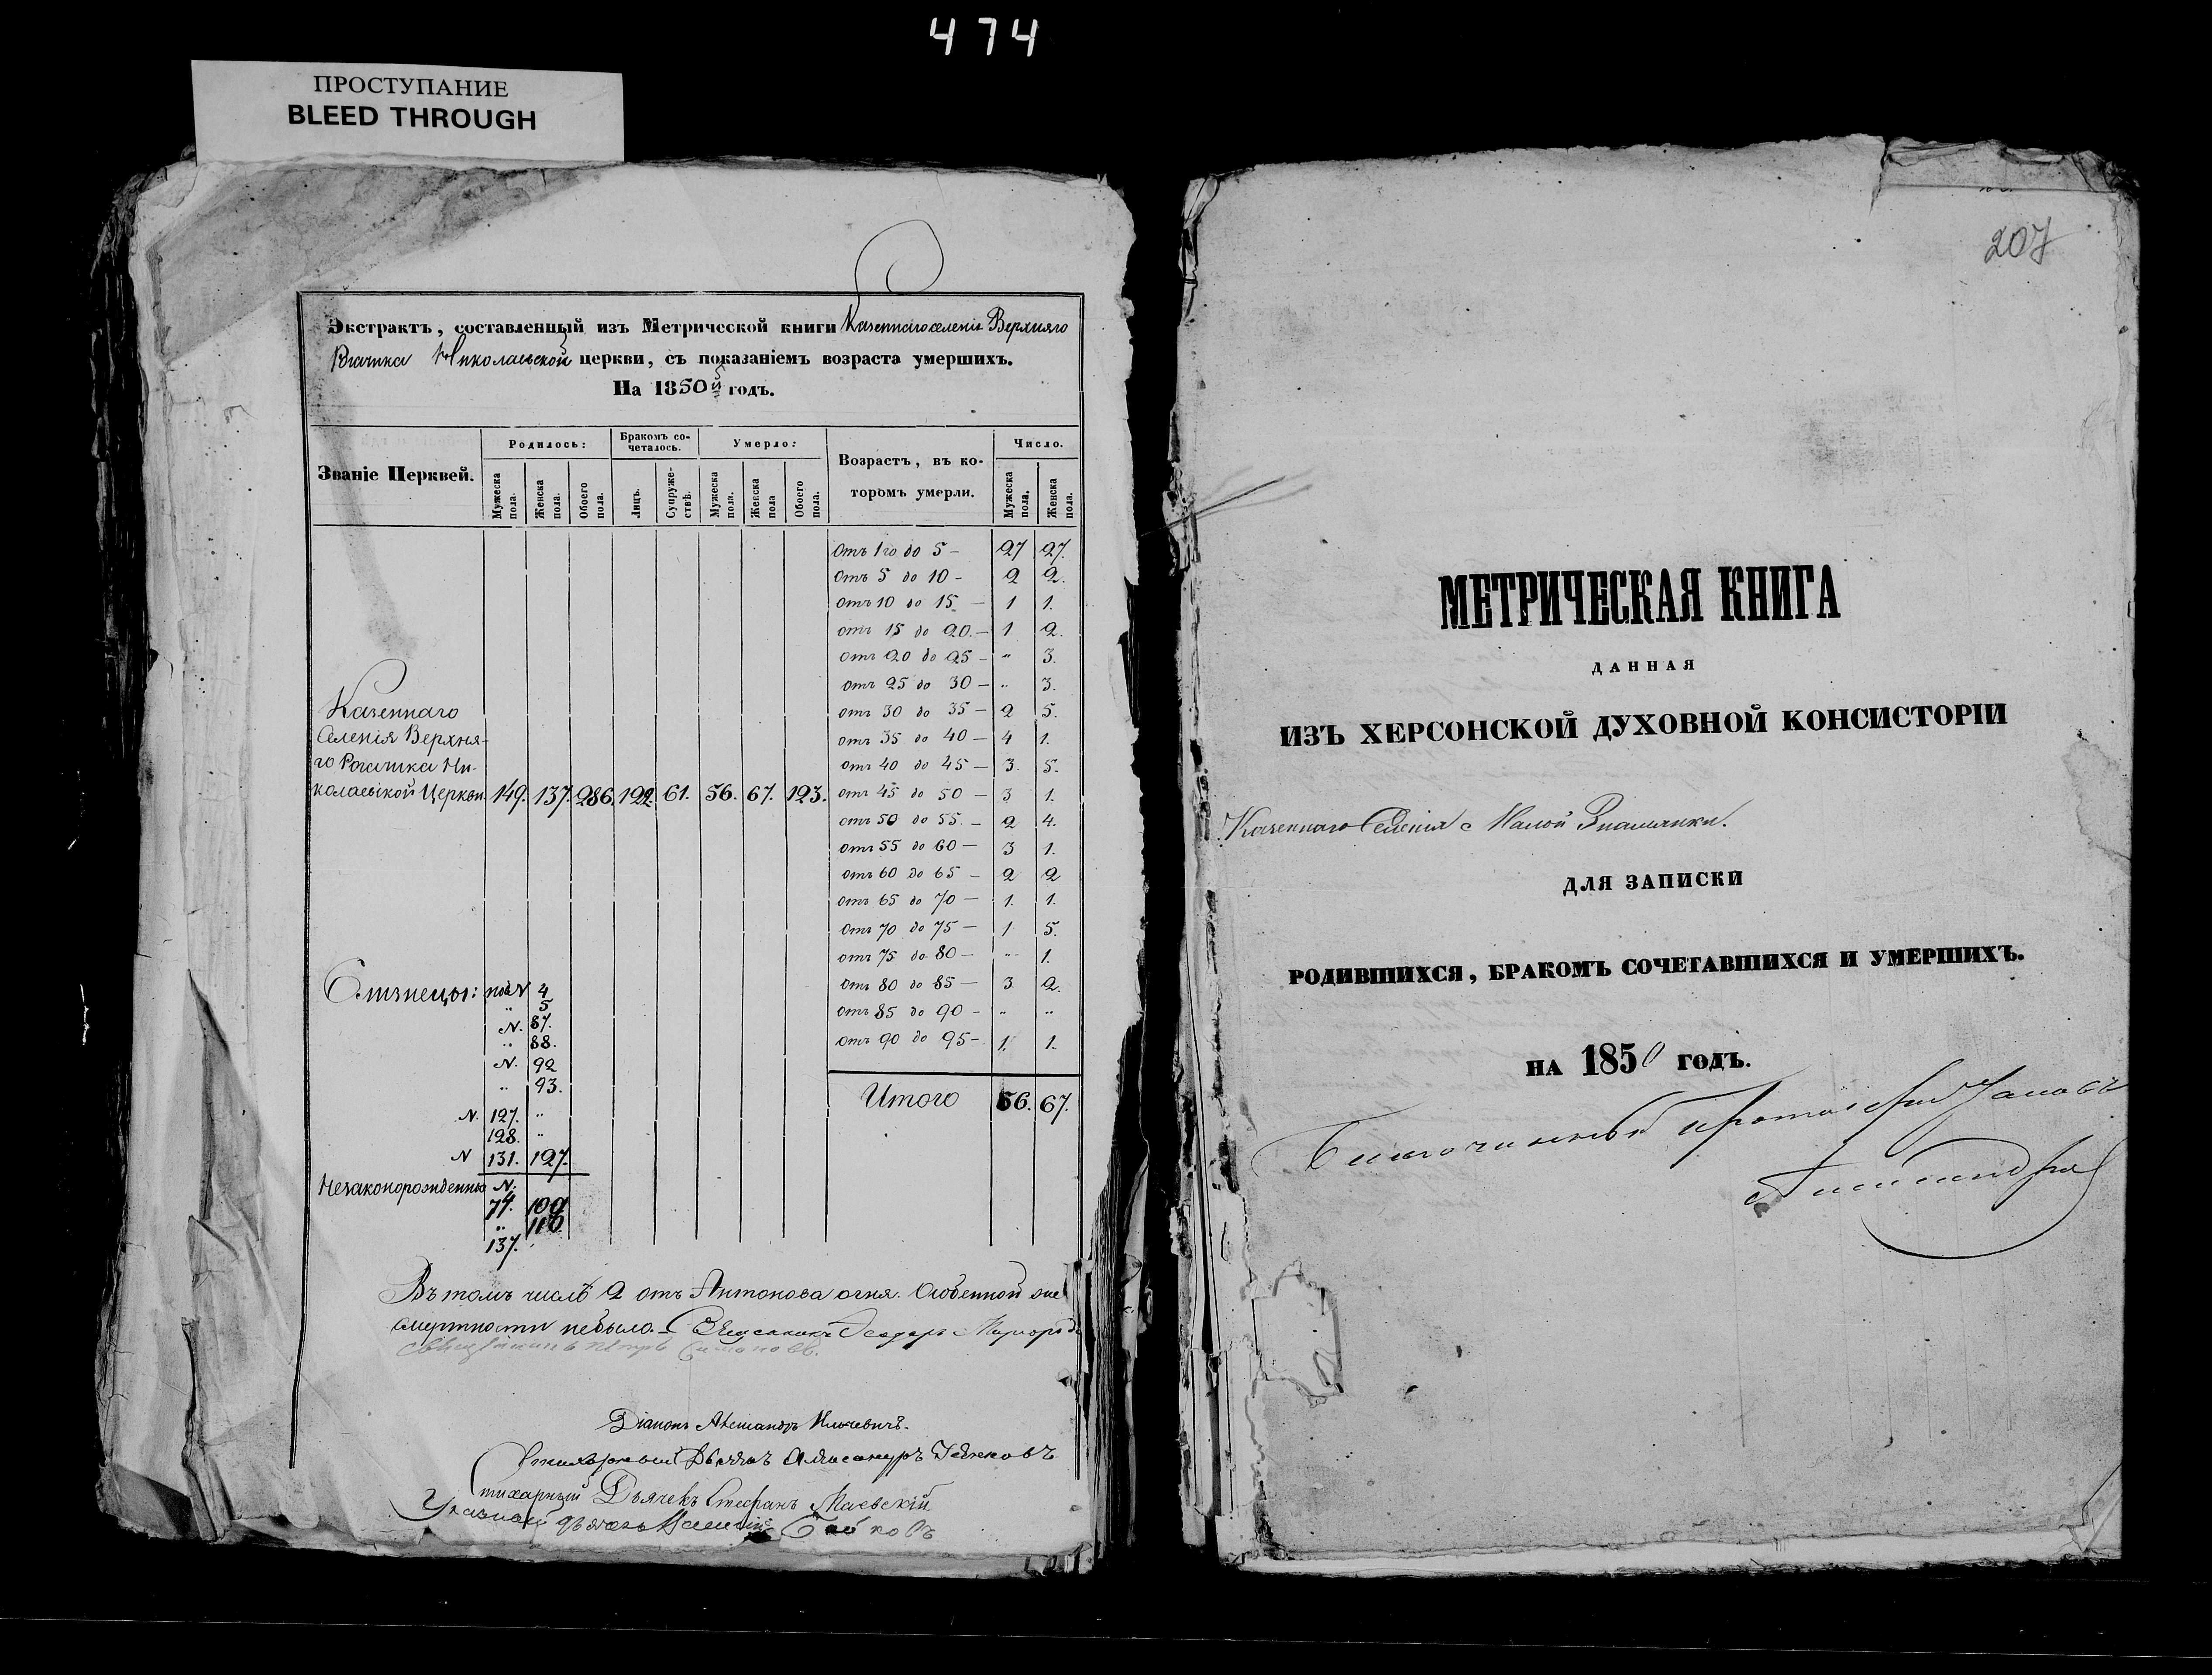 474
ПРОСТУПАНИЕ
BLEED THROUGH
Экстрактъ, составленный изъ Метрической книги Казеннаго селенія Верхняго
Николаевской церкви, съ показаніемъ возраста умершихъ.
На 1850й годъ.
Званіе Церквей.
Родилось:
Бракомъ со-
четалось.
Умерло:
Возрастъ, въ ко-
торомъ умерли.
Число.
Мужеска пола.
Женска пола.
Обоего пола.
Лицъ.
Супруже-
ствъ.
Мужеска пола.
Женска пола
Обоего пола.
Мужеска пола.
Женска пола.
Отъ 1го до 5 — 27 27.
Отъ 5 до 10 — 2 2.
отъ 10 до 15 — 1 1.
отъ 15 до 20. — 1 2.
отъ 20 до 25 — „ 3.
отъ 25 до 30 — „ 3.
отъ 30 до 35 — 2 5.
отъ 35 до 40 — 4 1.
отъ 40 до 45 — 3. 5.
отъ 45 до 50 — 3 1.
отъ 50 до 55. — 2 4.
отъ 55 до 60 — 3 1.
отъ 60 до 65 — 2 2
отъ 65 до 70 — 1. 1.
отъ 70 до 75 — 1 5.
отъ 75 до 80 — „ 1.
отъ 80 до 85 — 3 2.
отъ 85 до 90 — „ „
отъ 90 до 95 — 1. 1.
Итого 56. 67.
Казеннаго
Селенія Верхня-
го Рогачика Ни-
колаевской Церкви. 149. 137. 286. 122. 61. 56. 67. 123.
Близнецы: 4
„ 5
N. 87.
„ 88.
N. 92
„ 93.
N. 127. „
128. „
N 131. 127.
Незаконорожденные N.
74. 109
„ 110
137.
Въ томъ числѣ 2 отъ Антонова огня. Особенной
смертности небыло. — Священникъ Ѳеодоръ
Священникъ Петръ
Діаконъ Александръ
Стихарный Дьячекъ Александръ
Стихарный Дьячекъ Стефанъ Маевскій
Указный дьячекъ
207
МЕТРИЧЕСКАЯ КНИГА
ДАННАЯ
ИЗЪ ХЕРСОНСКОЙ ДУХОВНОЙ КОНСИСТОРІИ
Казеннаго Селенія с Малой Знаменки.
ДЛЯ ЗАПИСКИ
РОДИВШИХСЯ, БРАКОМЪ СОЧЕТАВШИХСЯ И УМЕРШИХЪ.
НА 1850 ГОДЪ.
Благочинный протоіерей